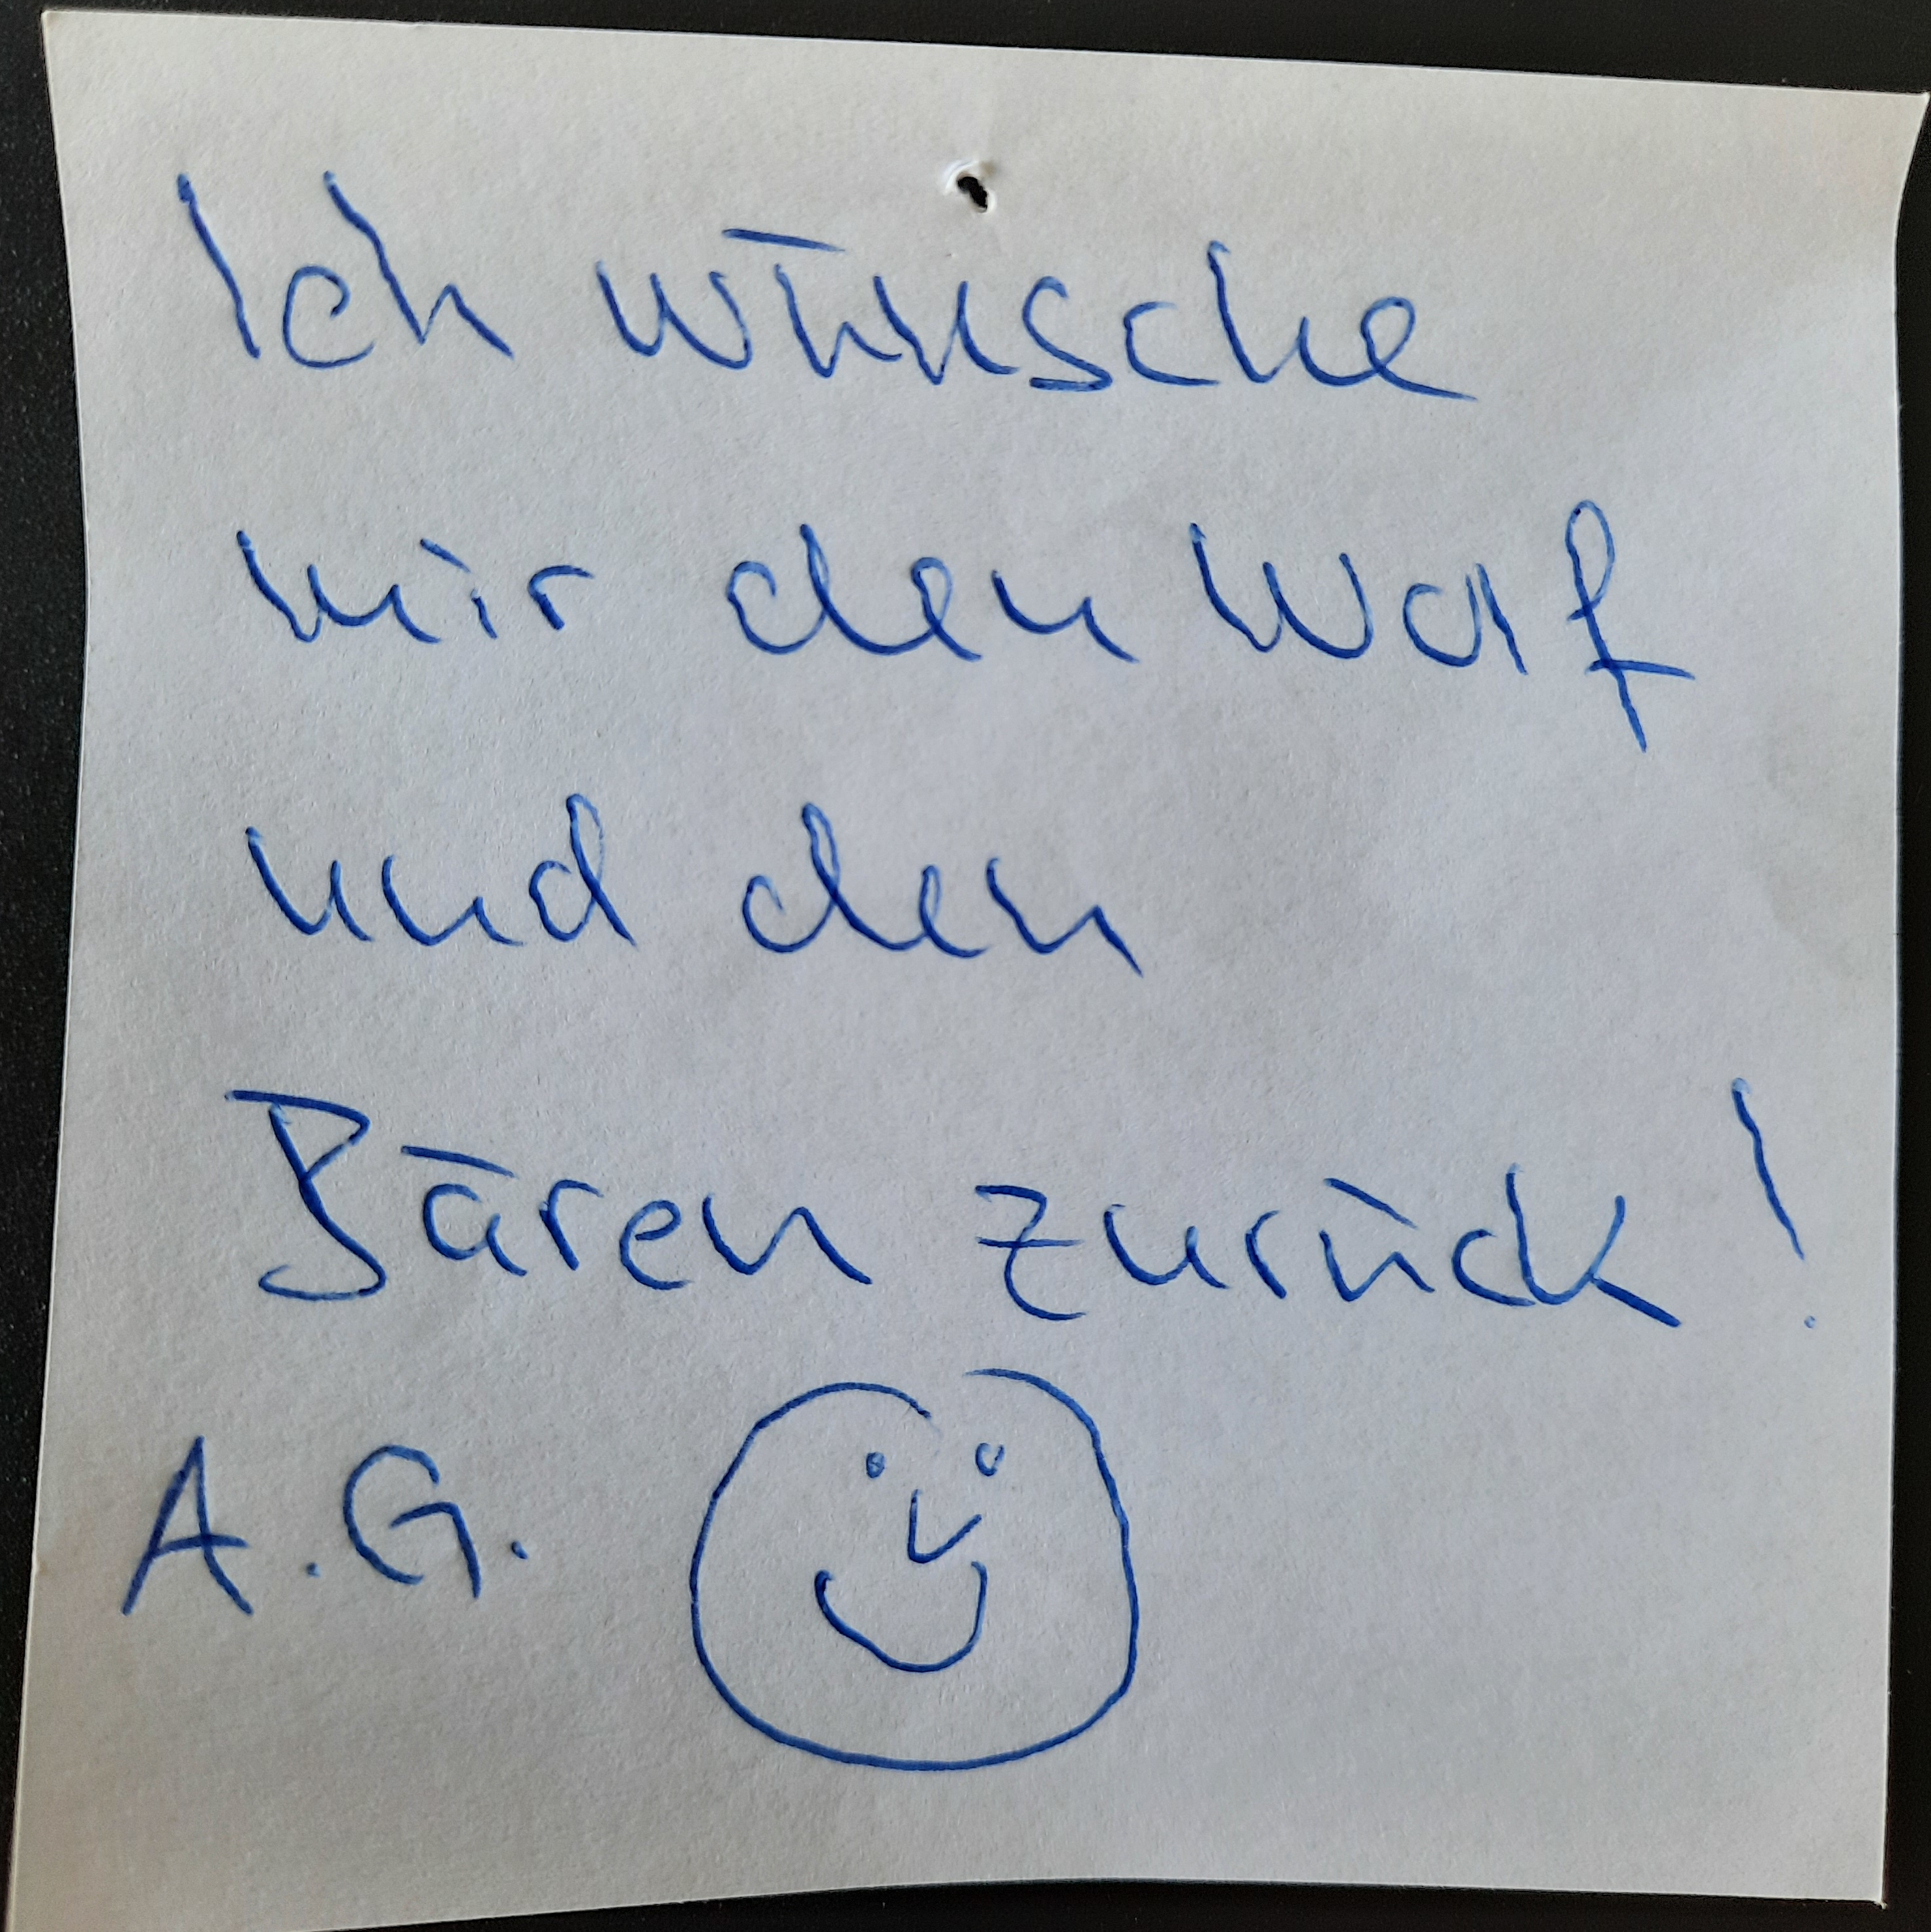 Ich wünsche
mir den Wolf
und den
Bären zurück!
A.G.